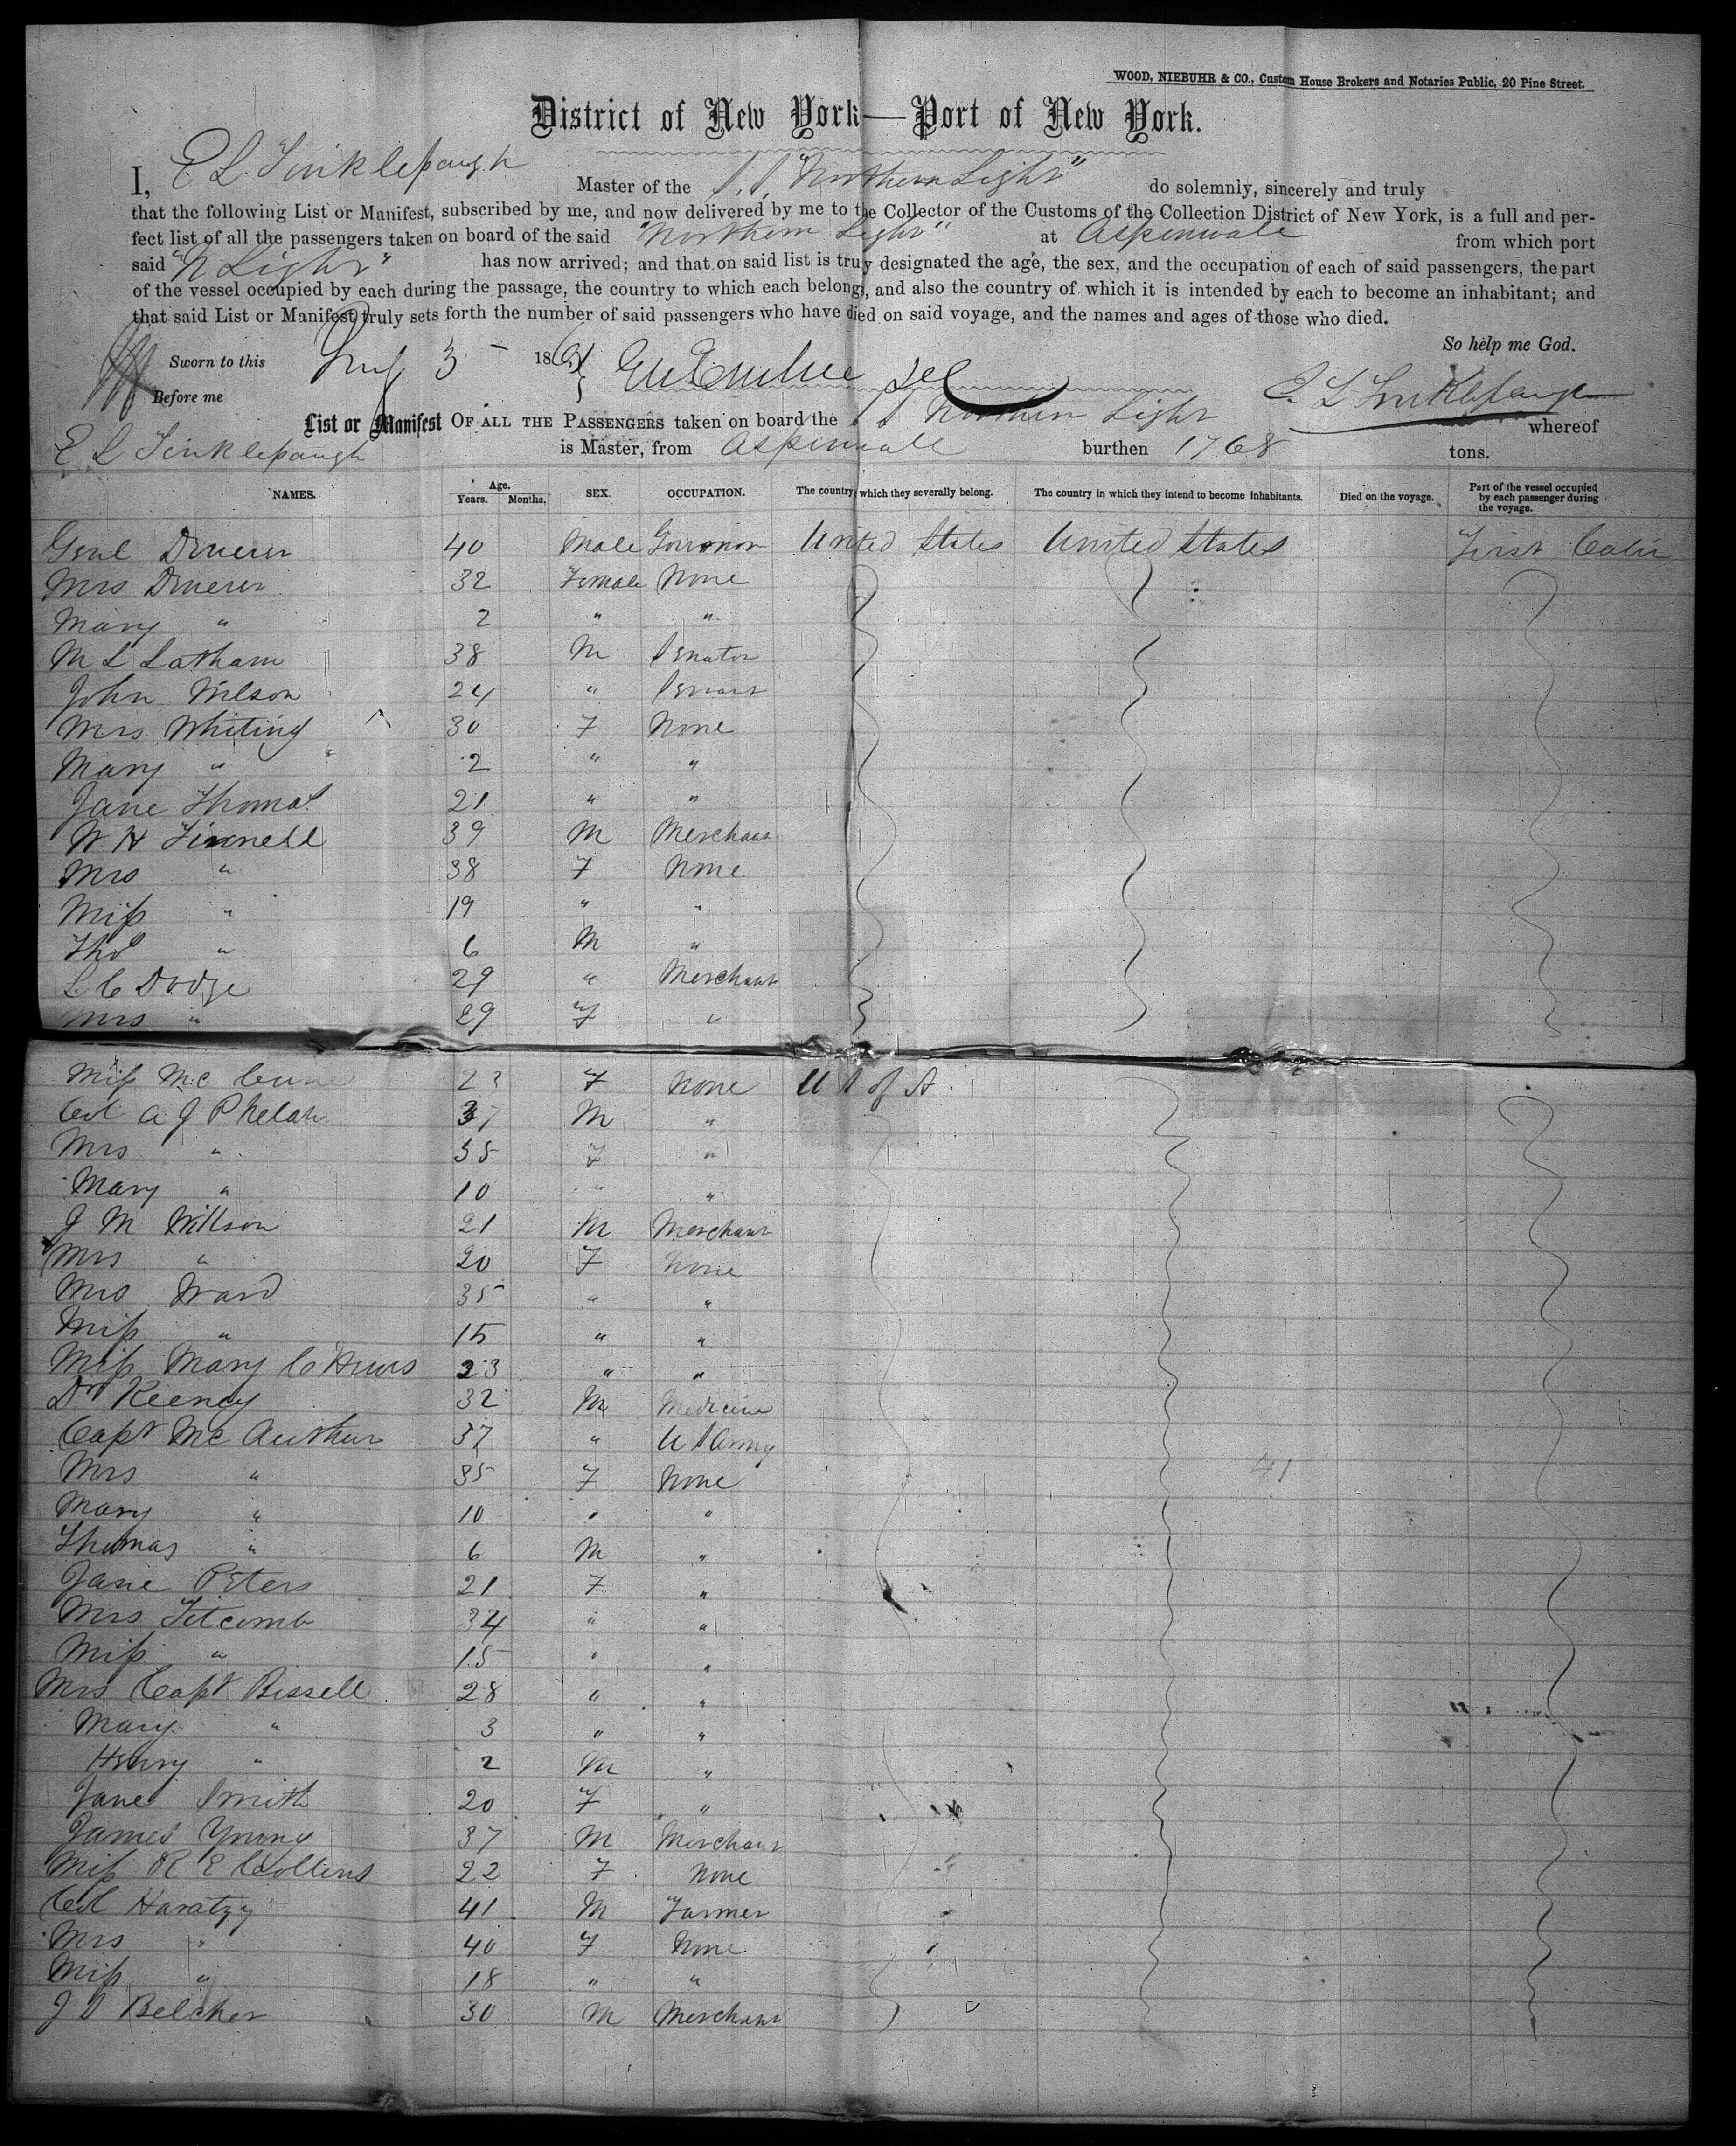 WOOD, NIEBUHR & CO., Custom House Brokers and Notaries Public, 20 Pine Street.
District of New York—Port of New York.
I, E. L. Tinklepaugh Master of the S.S. "Northern Light" do solemnly, sincerely and truly
that the following List or Manifest, subscribed by me, and now delivered by me to the Collector of the Customs of the Collection District of New York, is a full and per-
fect list of all the passengers taken on board of the said "Northern Light" at Aspinwall from which port
said "N Light" has now arrived; and that on said list is truly designated the age, the sex, and the occupation of each of said passengers, the part
of the vessel occupied by each during the passage, the country to which each belongs, and also the country of which it is intended by each to become an inhabitant; and
that said List or Manifest truly sets forth the number of said passengers who have died on said voyage, and the names and ages of those who died.
So help me God.
Sworn to this 186
Before me E. L. Tinklepaugh
List or Manifest OF ALL THE PASSENGERS taken on board the S S Northern Light whereof
E L Tinklepaugh is Master, from Aspinwall burthen 1768 tons.
NAMES. Age. Years. Months. SEX. OCCUPATION. The country which they severally belong. The country in which they intend to become inhabitants. Died on the voyage. Part of the vessel occupied by each passenger during the voyage.
Genl 40 Male Governor United States United States First Cabin
Mrs 32 Female None
Mary " 2 " "
M L Latham 38 M Senator
John Wilson 24 " Servant
Mrs Whiting 30 F None
Mary " 2 " "
Jane Thomas 21 " "
W H Finnell 39 M Merchant
Mrs " 38 F None
Miss " 19 " "
Thos " 6 M "
L. C Dodge 29 " Merchant
Mrs " 29 F "
Miss Mc 2 F None U S of A
Col A J Phelan 37 M "
Mrs " 35 F "
Mary " 10 " "
J M Willson 21 M Merchant
Mrs " 20 F None
Mrs Ward 35 " "
Miss " 15 " "
Miss Mary C 23 " "
Dr Keeney 32 M Medicine
Capt Mc Authur 37 " U S Army
Mrs " 35 F None 41
Mary " 10 " "
Thomas " 6 M "
Jane Peters 21 F "
Mrs Titcomb 34 " "
Miss " 15 " "
Mrs Capt Bissell 28 " "
Mary " 3 " "
Henry " 2 M "
Jane Smith 20 F "
James Young 37 M Merchant
Miss R E Collins 22 F None
Col Haratzy 41 M Farmer
Mrs " 40 F None
Miss " 18 " "
J S Belcher 30 M Merchant